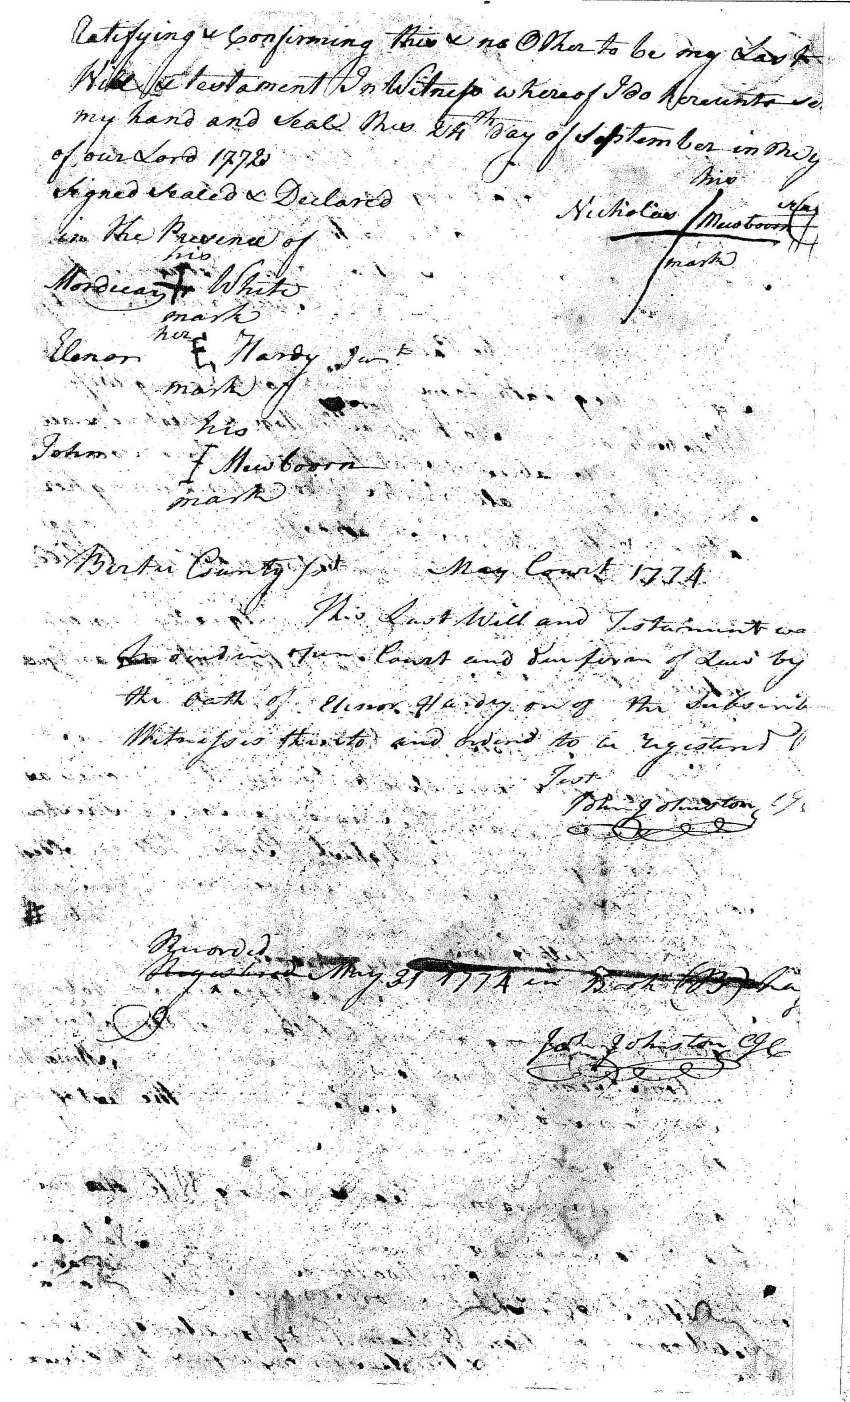 Ratifying & Confirming this & no Other to be my Last
Will & testament In Witness whereof I do hereunto se
my hand and Seal this 24th day of September in the y
of our Lord 1772
Signed Sealed & Declared
in the Presence of
his
Nicholas Mewboorn
mark
his
Mordicay White
mark
her
Elenor E Hardy Junr
mark
his
John I Mewboorn
mark
Bertie County Sst May Court 1774
This Last Will and Testament wa
in open Court and due form of Law by
the Oath of Elenor Hardy on of the Subscrib
Witnesses thereto and orderd to be registered
Test
John Johnston
Recorded
Registered May 21 1774 in Book (B)
John Johnston CJC